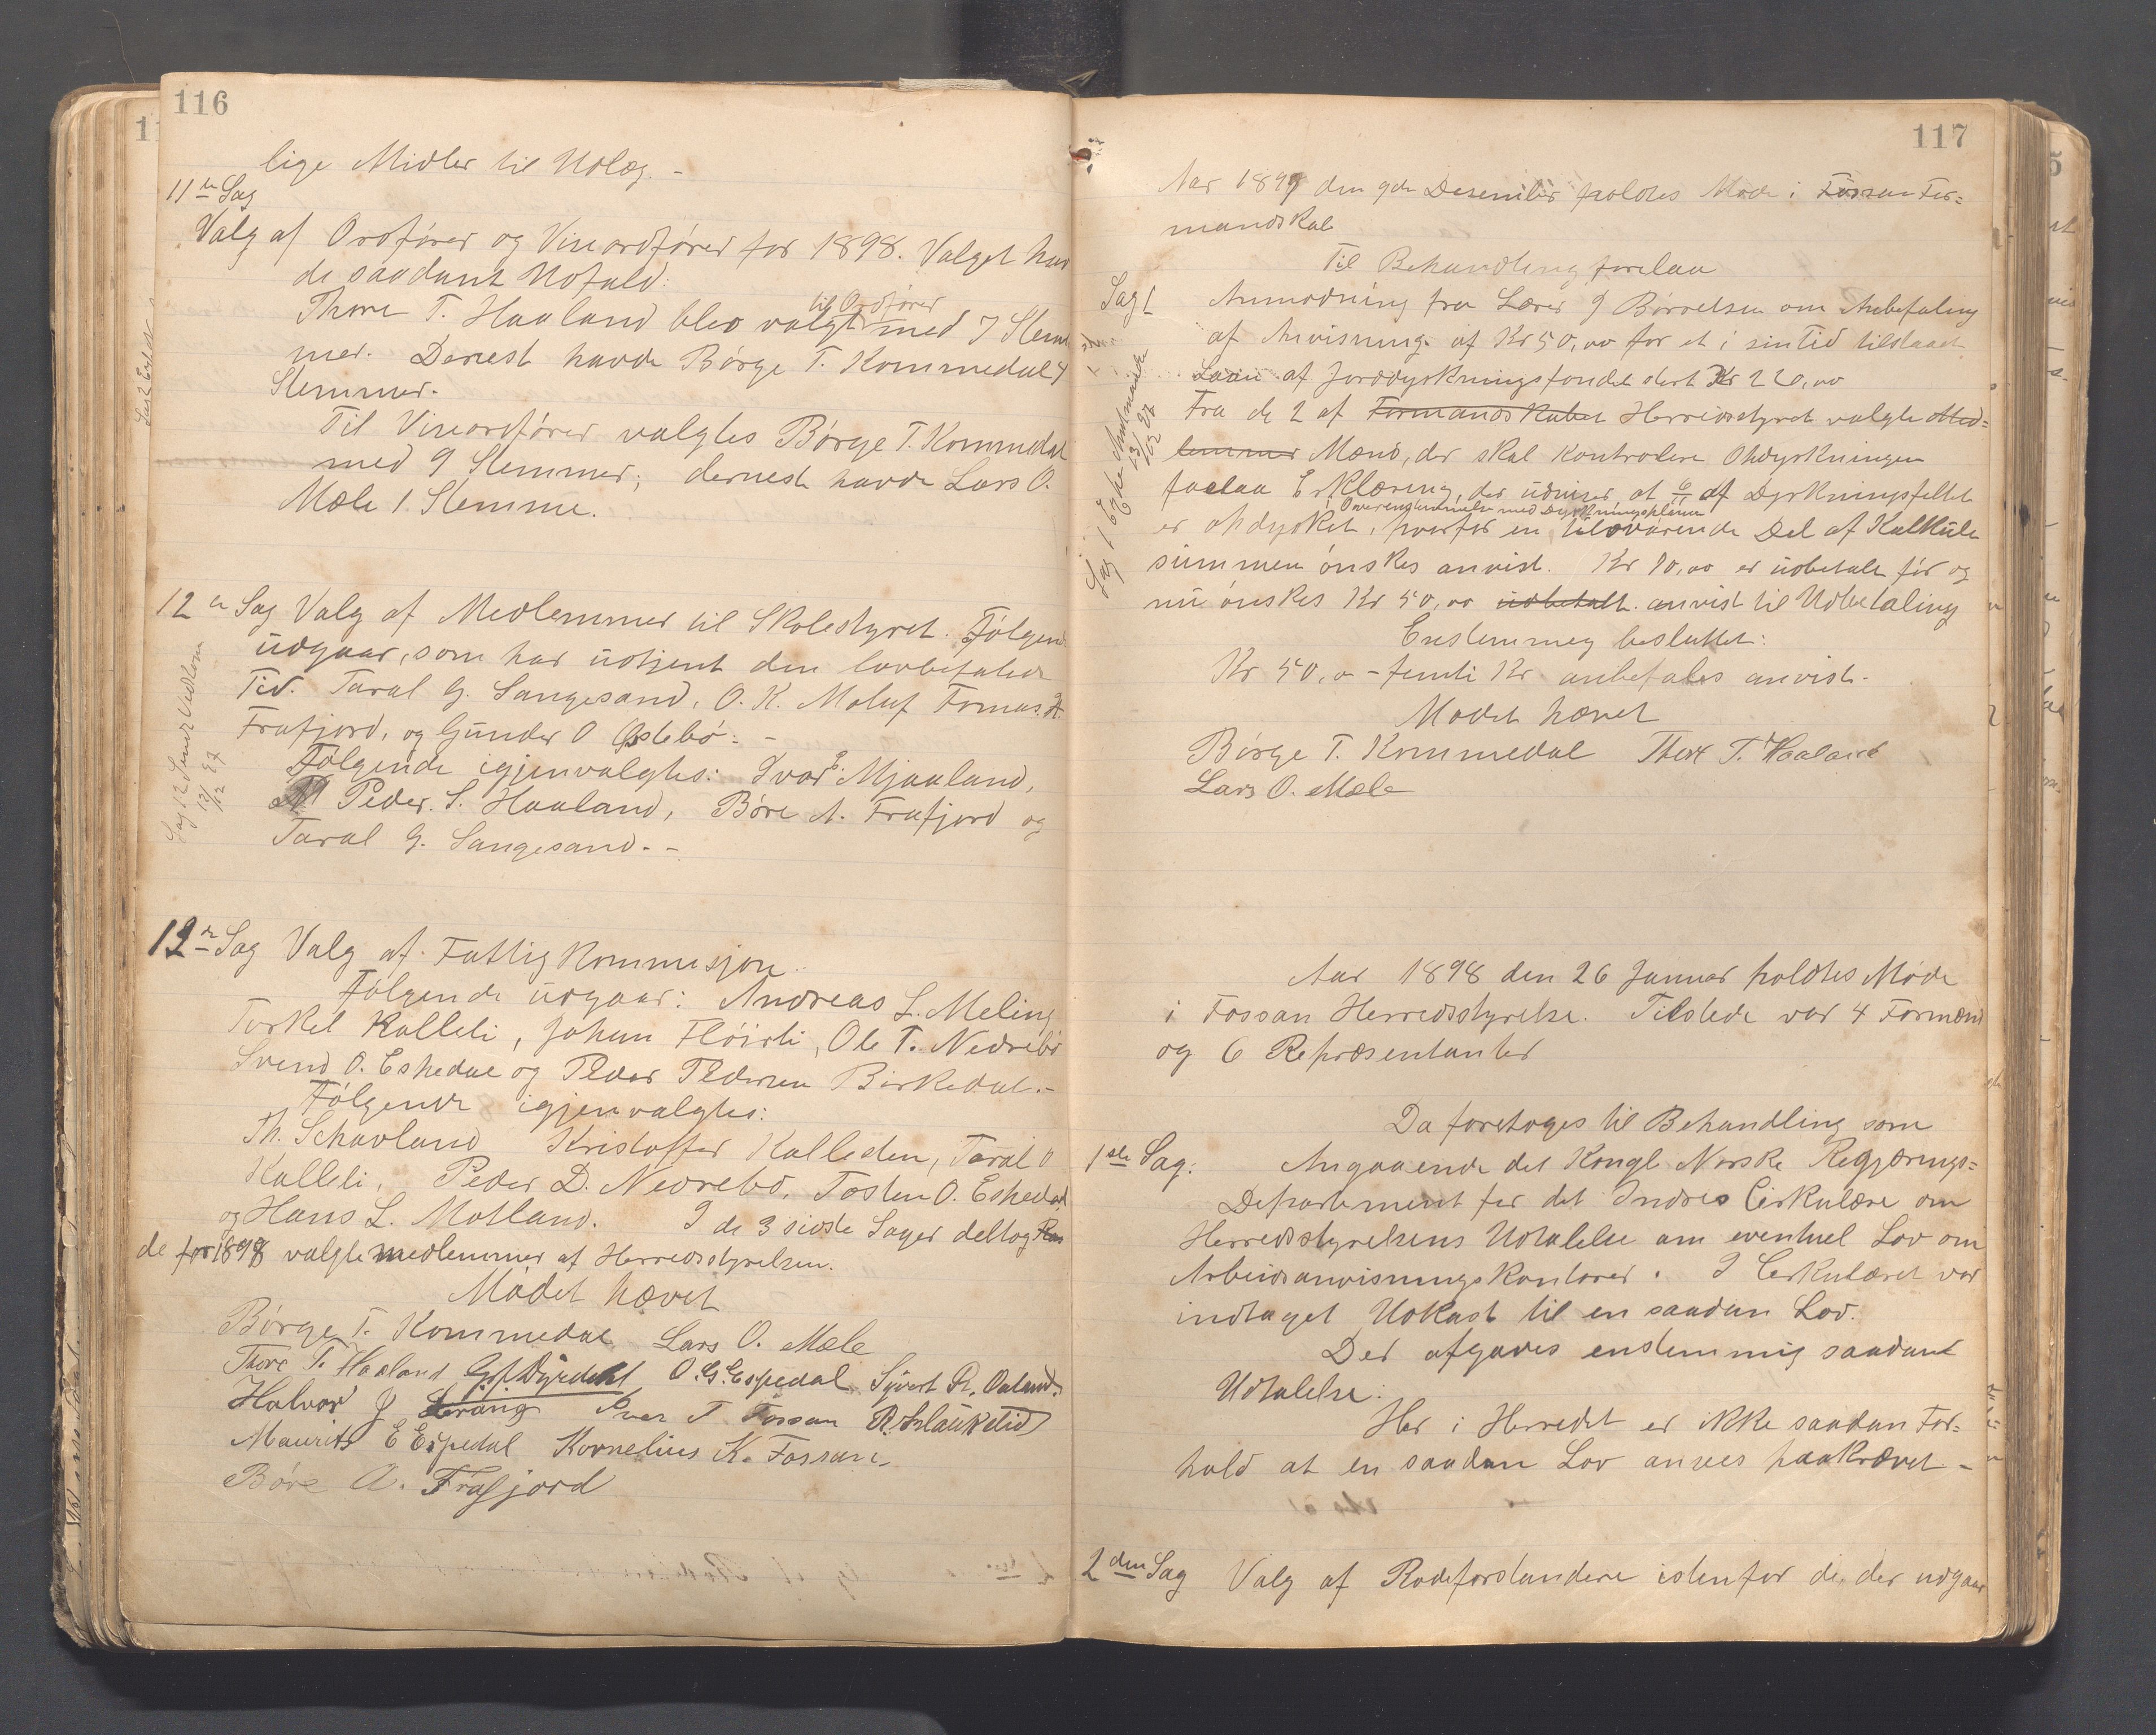 116
lige Midler til Udlæg. -
11te Sag
Valg af Ordfører og Viseordfører for 1898. Valget hav
de saadant Udfald:
til Ordfører
Thore T. Haaland blev valgt med 7 Stem
mer. Dernest havde Børge T. Kommedal 4
Stemmer.
Til Viseordfører valgtes Børge T. Kommedal
med 9 Stemmer; dernest havde Lars O.
Mæle 1 Stemme.
12te Sag Valg af Medlemmer til Skolestyret. Følgende
udgaar, som har udtjent den lovbefalede
Tid. Taral G. Sangesand, O. K. Moluf Tomas
Frafjord, og Gunder O Østebø. -
Følgende igjenvalgtes: Ivar Mjaaland,
Peder. S. Haaland, Børe A. Frafjord og
Taral G. Sangesand. -
Sag 12
13/12 97
13de Sag Valg af Fattigkommisjon
Følgende udgaar: Andreas L. Meling
Torkel Kalleli, Johan Fløirli, Ole T. Nedrebø
Svend O. Eskedal og Peder Pedersen Birkedal. -
Følgende igjenvalgtes:
Th. Schavland Kristoffer Kalleden, Taral O
Kalleli, Peder D. Nedrebø, Tosten O. Eskedal
og Hans L. Motland. I de 3 sidste Sager deltog
de for 1898 valgte medlemmer af Herredsstyrelsen.
Mødet hævet
Børge T. Kommedal Lars O. Mæle
Thore T. Haaland O. G. Espedal Sivert R. Oaland.
Halvor J Iver T Fossan
Maurits E Espedal Kornelius K. Fossan
Børe A. Frafjord
117
Aar 1897 den 9de Desember holdtes Møde i Fossan For=
mandskab
Til Behandling forelaa
Sag 1 Anmodning fra Lærer J Børrelsen om Anbefaling
af Anvisning af Kr 50,00 for et i sin Tid tilstaaet
Laan af Jorddyrkningsfondet stort Kr 220,00
Fra de 2 af Formandskabet Herredsstyret valgte Med=
lemmer Mænd, der skal kontrolere Opdyrkningen
forelaa Erklæring, der udviser at 6/11 af Dyrkningsfeltet
i Overensstemmelse med Dyrkningsplanen
er opdyrket, hvorfor en tilsvarende Del af Kalkule
summen ønskes anvist. Kr 70,00 er udbetalt før og
nu ønskes Kr 50,00 udbetalt anvist til Udbetaling
Enstemmeg besluttet:
Kr 50,00 - femti Kr anbefales anvist.
Mødet hævet
Børge T. Kommedal Thore T. Haaland
Lars O. Mæle
Aar 1898 den 26 Januar holdtes Møde
i Fossan Herredsstyrelse. Tilstede var 4 Formænd
og 6 Repræsentanter
Da foretoges til Behandling som
1ste Sag. Angaaende det Kongl Norske Regjærings=
Departement for det Indres Cirkulære om
Herredsstyrelsens Udtalelse om eventuel Lov om
Arbeidsanvisningskontorer. I Cirkulæret var
indtaget Udkast til en saadan Lov.
Der afgaves enstemmig saadant
Udtalelse:
Her i Herredet er ikke saadan For=
hold at en saadan Lov ansees paakrævet -
2den Sag Valg af Rodeforstandere istenfor de, der udgaar